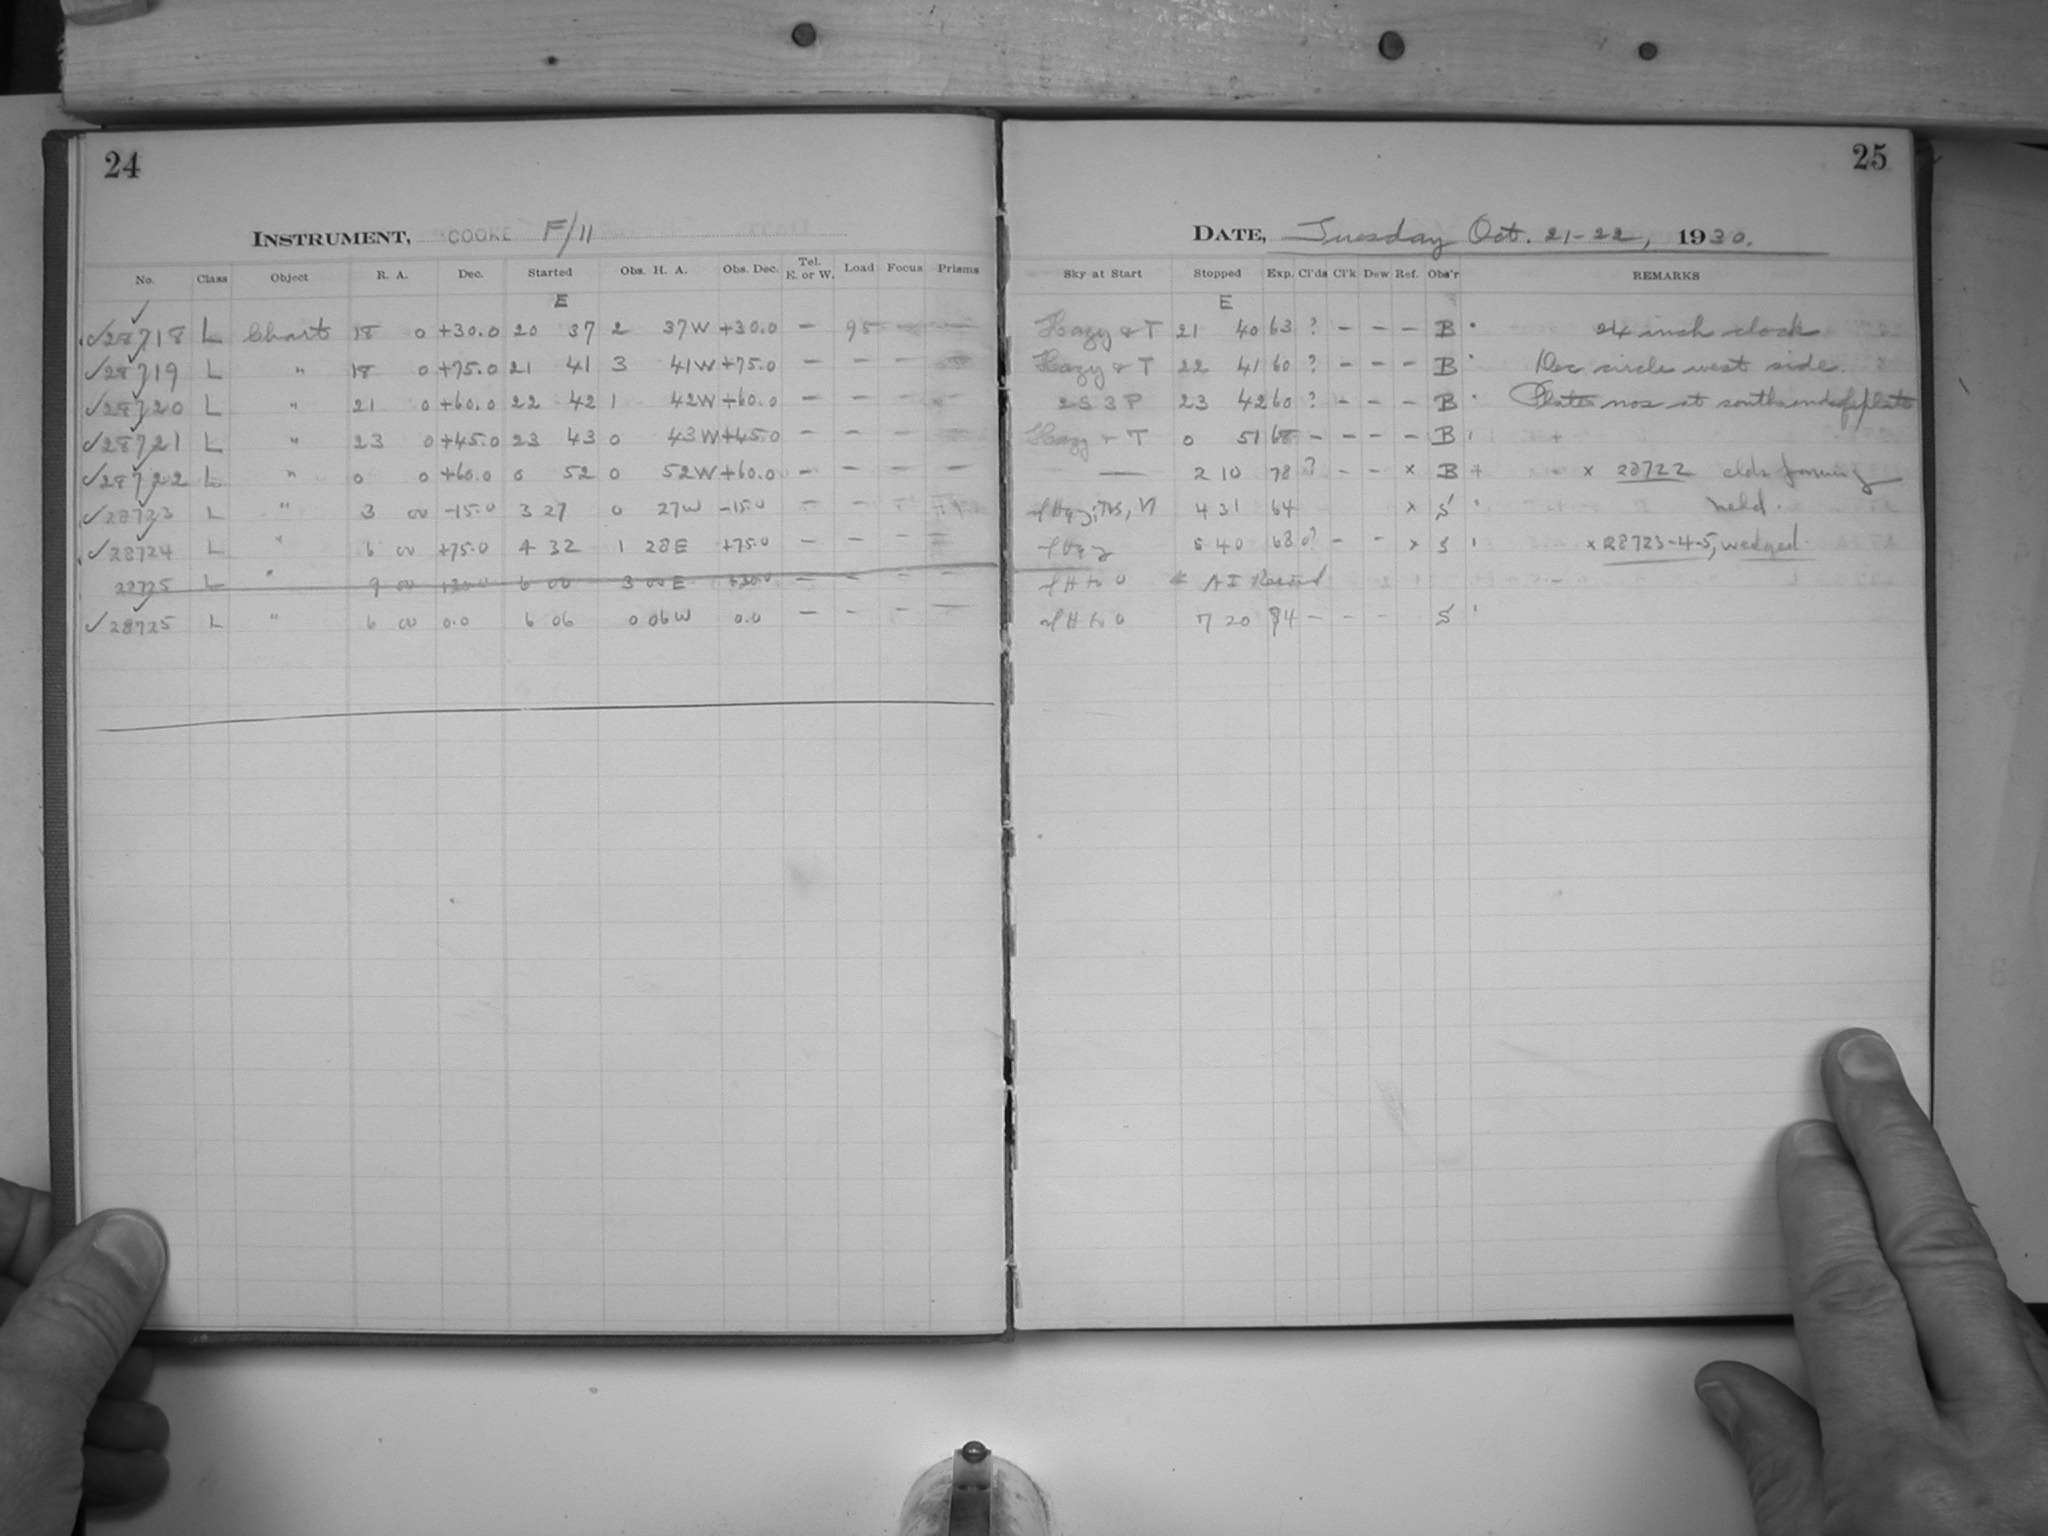 24
INSTRUMENT, COOKE F/11
No. Class Object R. A. Dec. Started Obs. H. A. Obs. Dec. Tel. E. or W. Load Focus Prisms
E
✓28718 L Chart 18 0 +30.0 20 37 2 37W +30.0 – 95 – –
✓28719 L " 18 0 +75.0 21 41 3 41W +75.0 – – – –
✓28720 L " 21 0 +60.0 22 42 1 42W +60.0 – – – –
✓28721 L " 23 0 +45.0 23 43 0 43W +45.0 – – – –
✓28722 L " 0 0 +60.0 0 52 0 52W +60.0 – – – –
✓28723 L " 3 00 -15.0 3 27 0 27W -15.0 – –
✓28724 L " 6 00 +75.0 4 32 1 28E +75.0 – – – –
28725 L " 9 00 +30.0 6 00 3 00 E +30.0 – – – –
✓28725 L " 6 00 0.0 6 06 0 06W 0.0 – – – –
25
DATE, Tuesday Oct. 21-22, 1930.
Sky at Start Stopped Exp. Cl'ds Cl'k Dew Ref. Obs'r REMARKS
E
Hazy & T 21 40 63 ? – – – B 24 inch clock
Hazy & T 22 41 60 ? – – – B Dec circle west side.
2S 3P 23 42 60 ? – – – B Plate nos at south end of plate
Hazy & T 0 51 68 – – – – B
— 2 10 78 ? – – x B x 28722 clds forming
4 31 64 x S held.
5 40 68 0? – – x S x 28723-4-5, wedged
H to 0
H to 0 7 20 – – – S